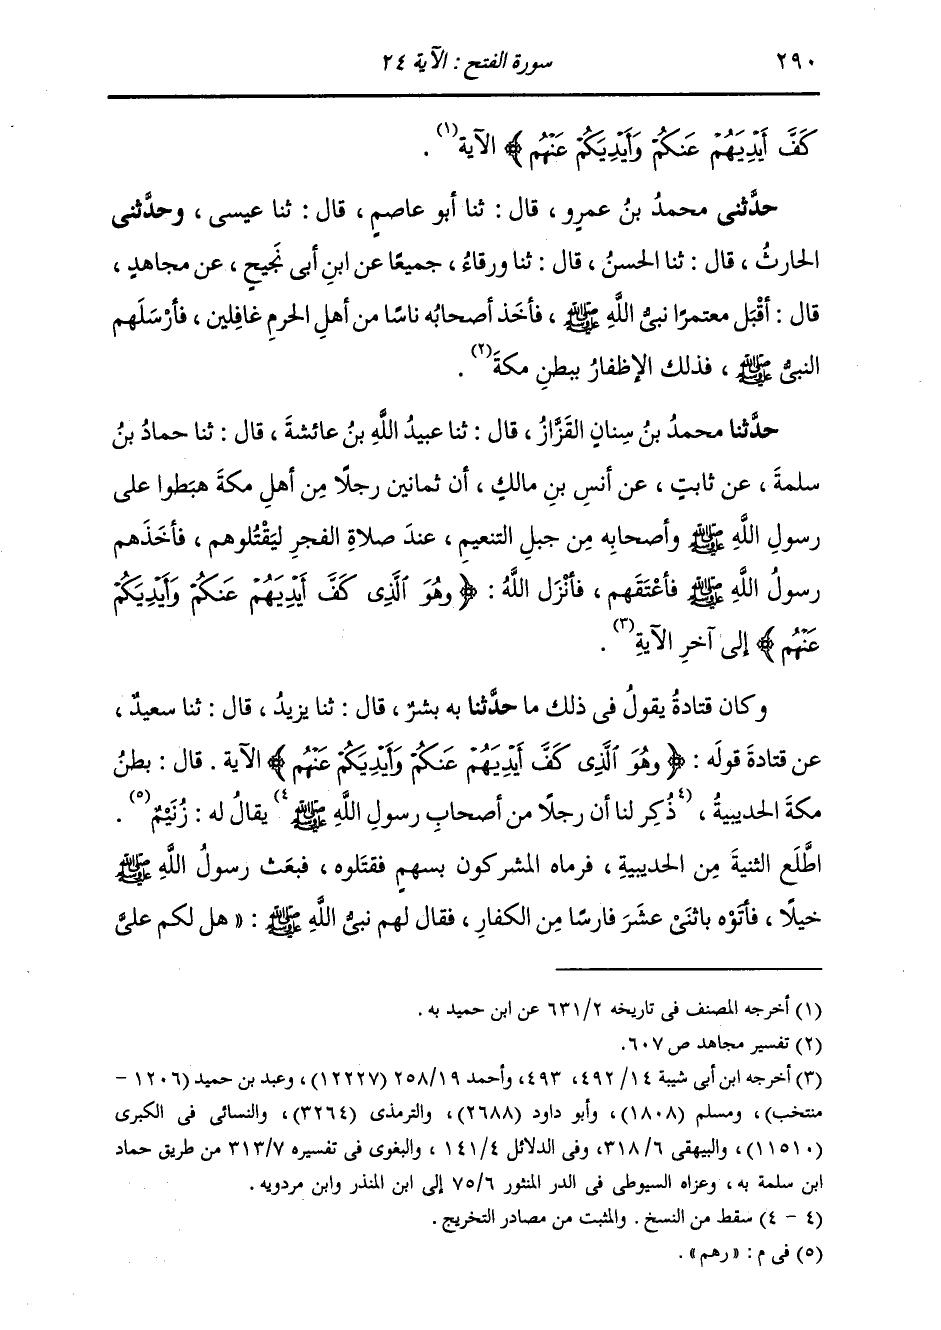 ٢٩٠ سورة الفتح : الآية ٢٤
كَفَّ أَيْدِيَهُمْ عَنكُمْ وَأَيْدِيَكُمْ عَنْهُم ﴾ الآية(١) .
حدَّثنى محمدُ بنُ عمرٍو ، قال : ثنا أبو عاصمٍ ، قال : ثنا عيسى ، وحدَّثنى
الحارثُ ، قال : ثنا الحسنُ ، قال : ثنا ورقاءُ ، جميعًا عن ابنِ أبى نَجيحٍ ، عن مجاهدٍ ،
قال : أقْبَل معتمرًا نبىُّ اللَّهِ ﷺ ، فأخَذ أصحابُه ناسًا من أهلِ الحرمِ غافِلين ، فأرْسَلَهم
النبىُّ ﷺ ، فذلك الإظفارُ ببطنِ مكةَ(٢) .
حدَّثنا محمدُ بنُ سِنانٍ القَزَّازُ ، قال : ثنا عبيدُ اللَّهِ بنُ عائشةَ ، قال : ثنا حمادُ بنُ
سلمةَ ، عن ثابتٍ ، عن أنسِ بنِ مالكٍ ، أن ثمانين رجلًا مِن أهلِ مكةَ هبَطوا على
رسولِ اللَّهِ ﷺ وأصحابِه مِن جبلِ التنعيمِ ، عندَ صلاةِ الفجرِ ليَقْتُلوهم ، فأخَذَهم
رسولُ اللَّهِ ﷺ فأعْتَقَهم ، فأنْزَل اللَّهُ : ﴿ وَهُوَ ٱلَّذِى كَفَّ أَيْدِيَهُمْ عَنكُمْ وَأَيْدِيَكُمْ
عَنْهُم ﴾ إلى آخرِ الآيةِ(٣) .
وكان قتادةُ يقولُ فى ذلك ما حدَّثنا به بشرٌ ، قال : ثنا يزيدُ ، قال : ثنا سعيدٌ ،
عن قتادةَ قولَه : ﴿ وَهُوَ ٱلَّذِى كَفَّ أَيْدِيَهُمْ عَنكُمْ وَأَيْدِيَكُمْ عَنْهُم ﴾ الآية . قال : بطنُ
مكةَ الحديبيةُ ، (٤ذُكِر لنا أن رجلًا من أصحابِ رسولِ اللَّهِ ﷺ٤) يقالُ له : زُنَيْمٌ(٥) .
اطَّلَع الثنيةَ مِن الحديبيةِ ، فرماه المشركون بسهمٍ فقتَلوه ، فبعَث رسولُ اللَّهِ ﷺ
خيلًا ، فأتَوْه باثنَىْ عشَرَ فارسًا مِن الكفارِ ، فقال لهم نبىُّ اللَّهِ ﷺ : « هل لكم علىَّ
(١) أخرجه المصنف فى تاريخه ٦٣١/٢ عن ابن حميد به .
(٢) تفسير مجاهد ص ٦٠٧.
(٣) أخرجه ابن أبى شيبة ١٤/ ٤٩٢، ٤٩٣، وأحمد ٢٥٨/١٩ (١٢٢٢٧) ، وعبد بن حميد (١٢٠٦ –
منتخب) ، ومسلم (١٨٠٨)، وأبو داود (٢٦٨٨)، والترمذى (٣٢٦٤)، والنسائى فى الكبرى
(١١٥١٠) ، والبيهقى ٣١٨/٦، وفى الدلائل ١٤١/٤ ، والبغوى فى تفسيره ٣١٣/٧ من طريق حماد
ابن سلمة به ، وعزاه السيوطى فى الدر المنثور ٧٥/٦ إلى ابن المنذر وابن مردويه .
(٤ – ٤) سقط من النسخ . والمثبت من مصادر التخريج .
(٥) فى م : « رهم » .